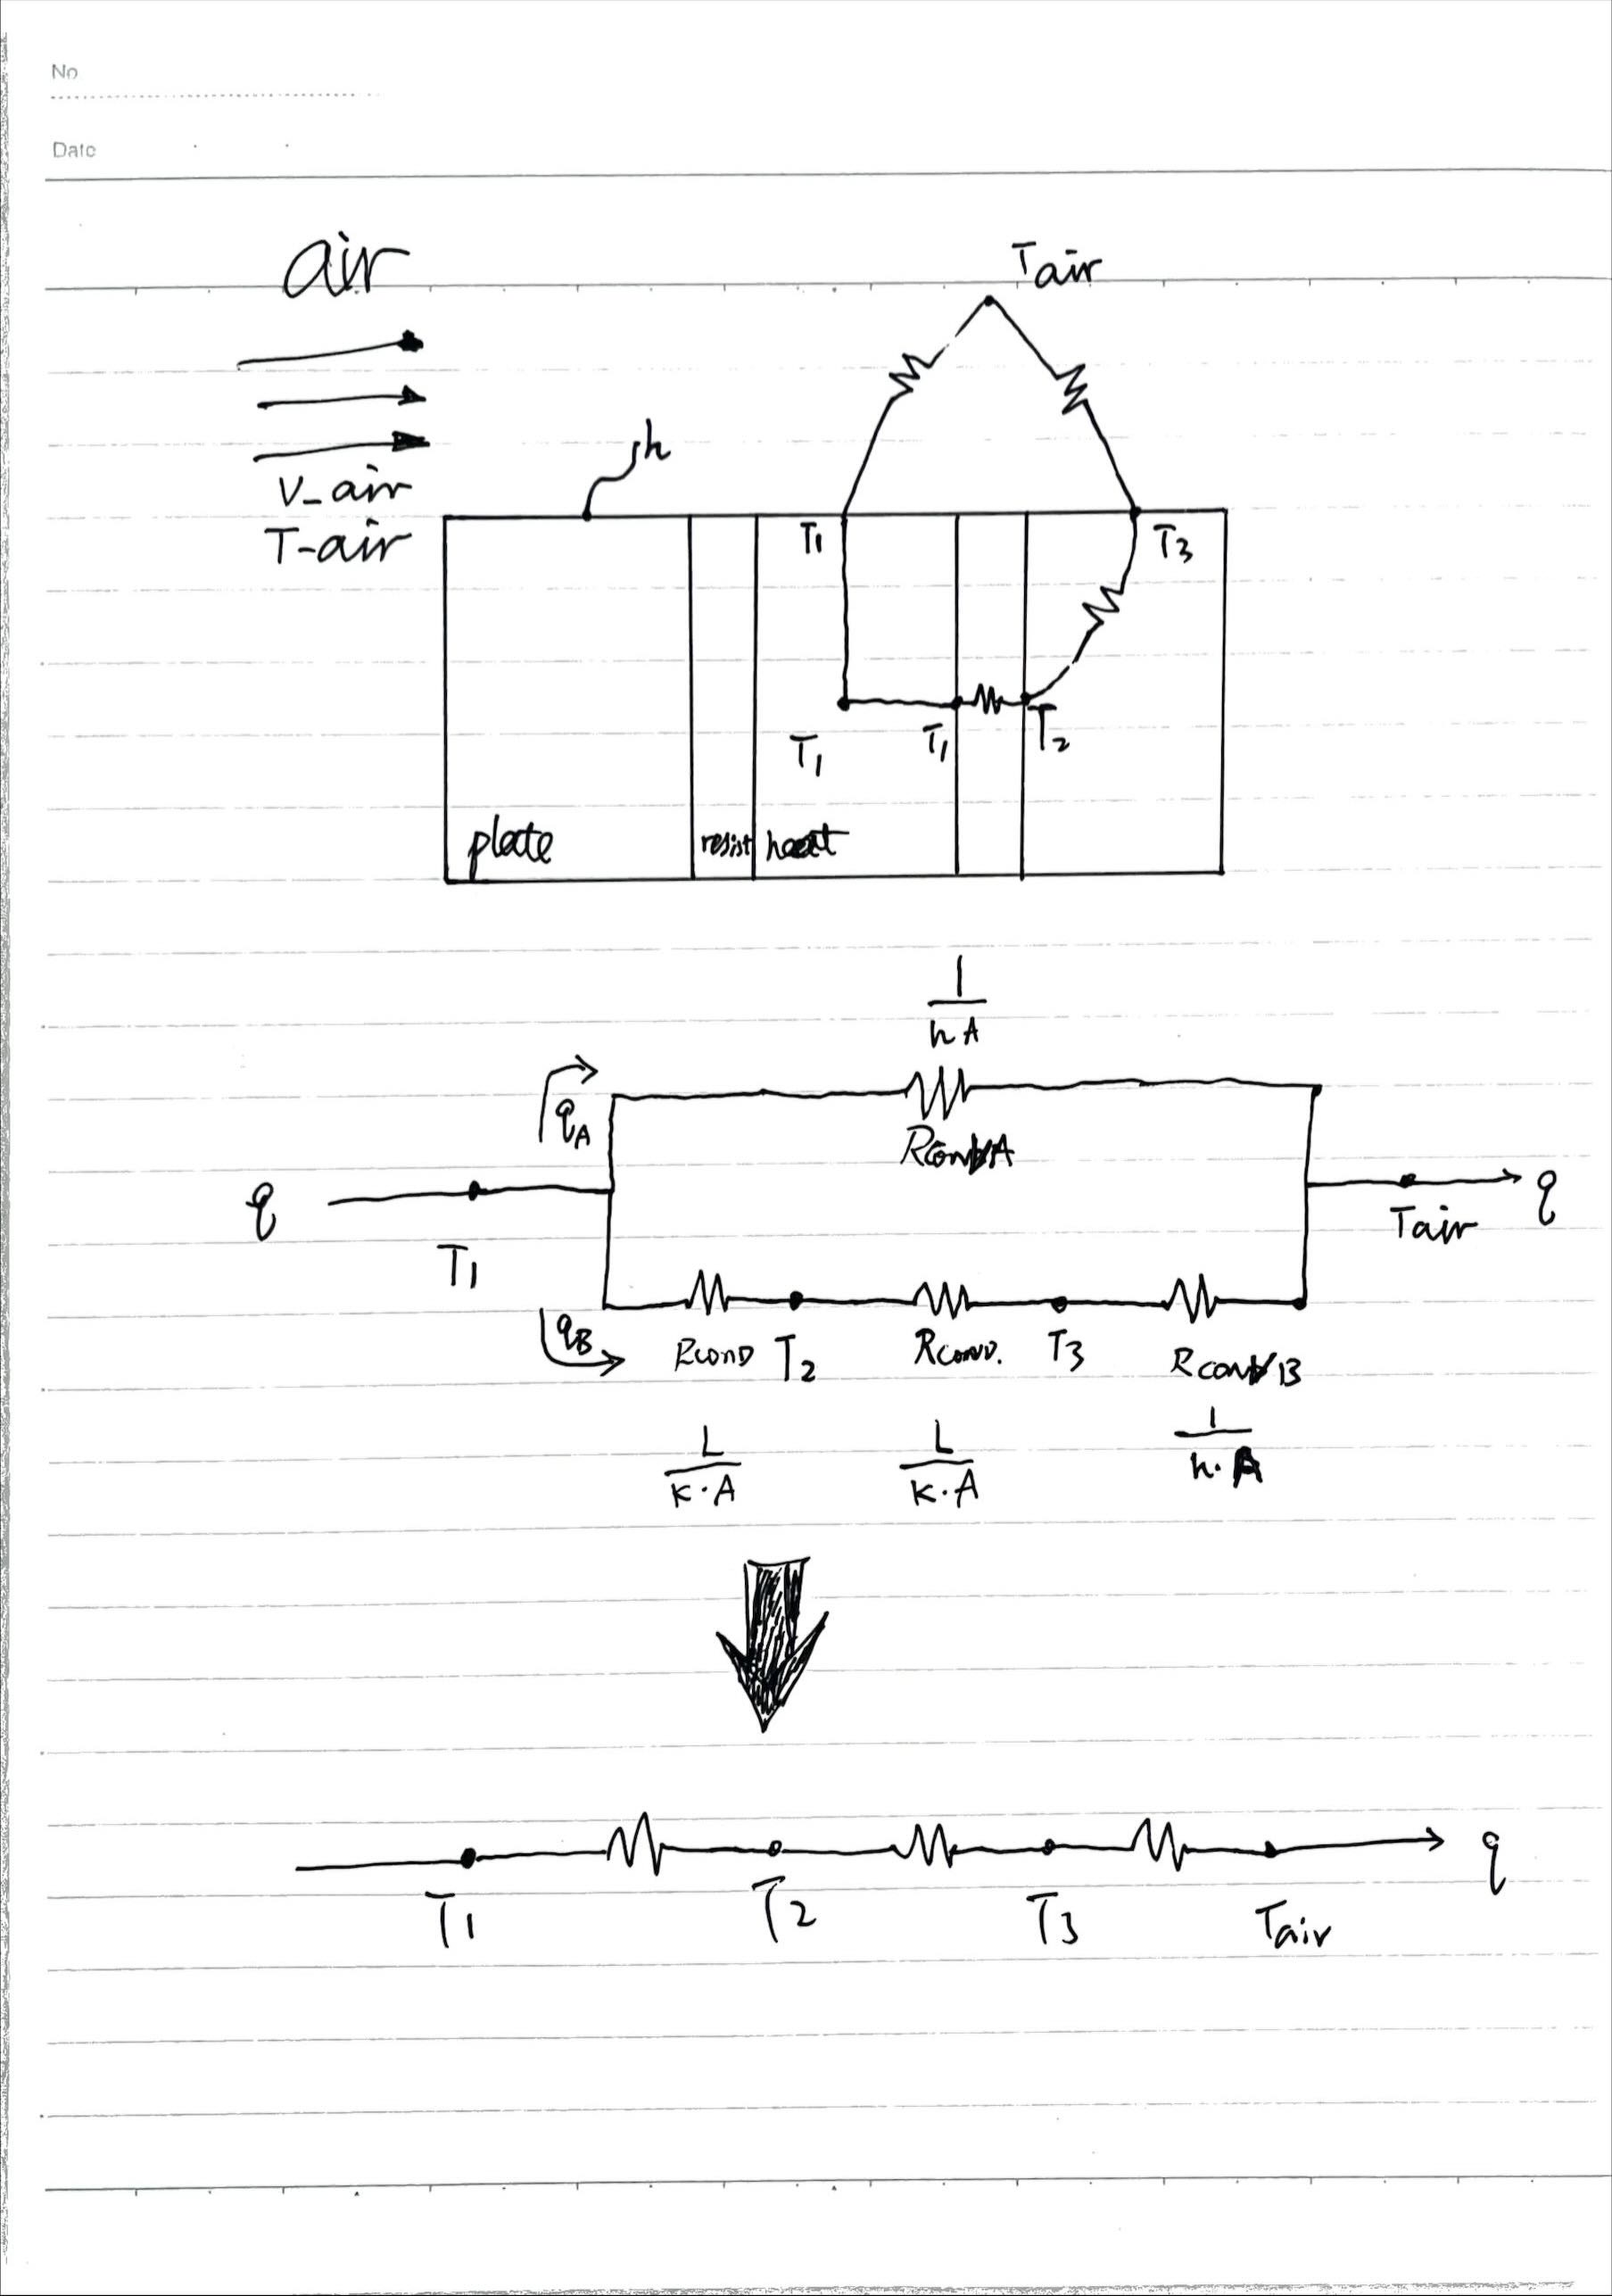 No
Date
air
Tair
h
V_air
T-air
T1
T3
T1
T1
T2
plate
resist
heat
1
hA
qA
RconvA
q
q
T1
Tair
qB
RconD
T2
RconD.
T3
RconvB
L
K·A
L
K·A
1
h·A
q
T1
T2
T3
Tair